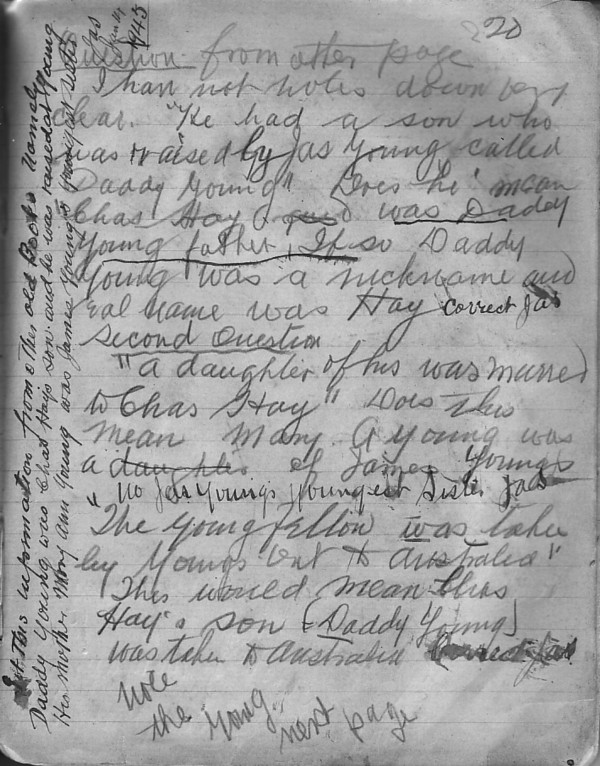 20
Question from other page
I han not notes down very
clear. "He had a son who
was raised by Jas Young called
Daddy Young" Does he mean
Chas Hay was Daddy
Young father, If so Daddy
Young was a nickname and
real name was Hay correct Jas
Second Question
"a daughter of his was married
to Chas Hay" Does this
mean Mary A Young was
a daughter of James Youngs
" no Jas Youngs youngest Sister Jas
The young fellow was taken
by Youngs out to Australia"
This would mean Chas
Hay's son (Daddy Young)
was taken to Australia Correct Jas
note
the young
next page
this information from other old Books namely
Daddy Young was Chas Hays son and he was raised at Young
His mother Mary Ann Young was James Youngs youngest sister
Jas
1943